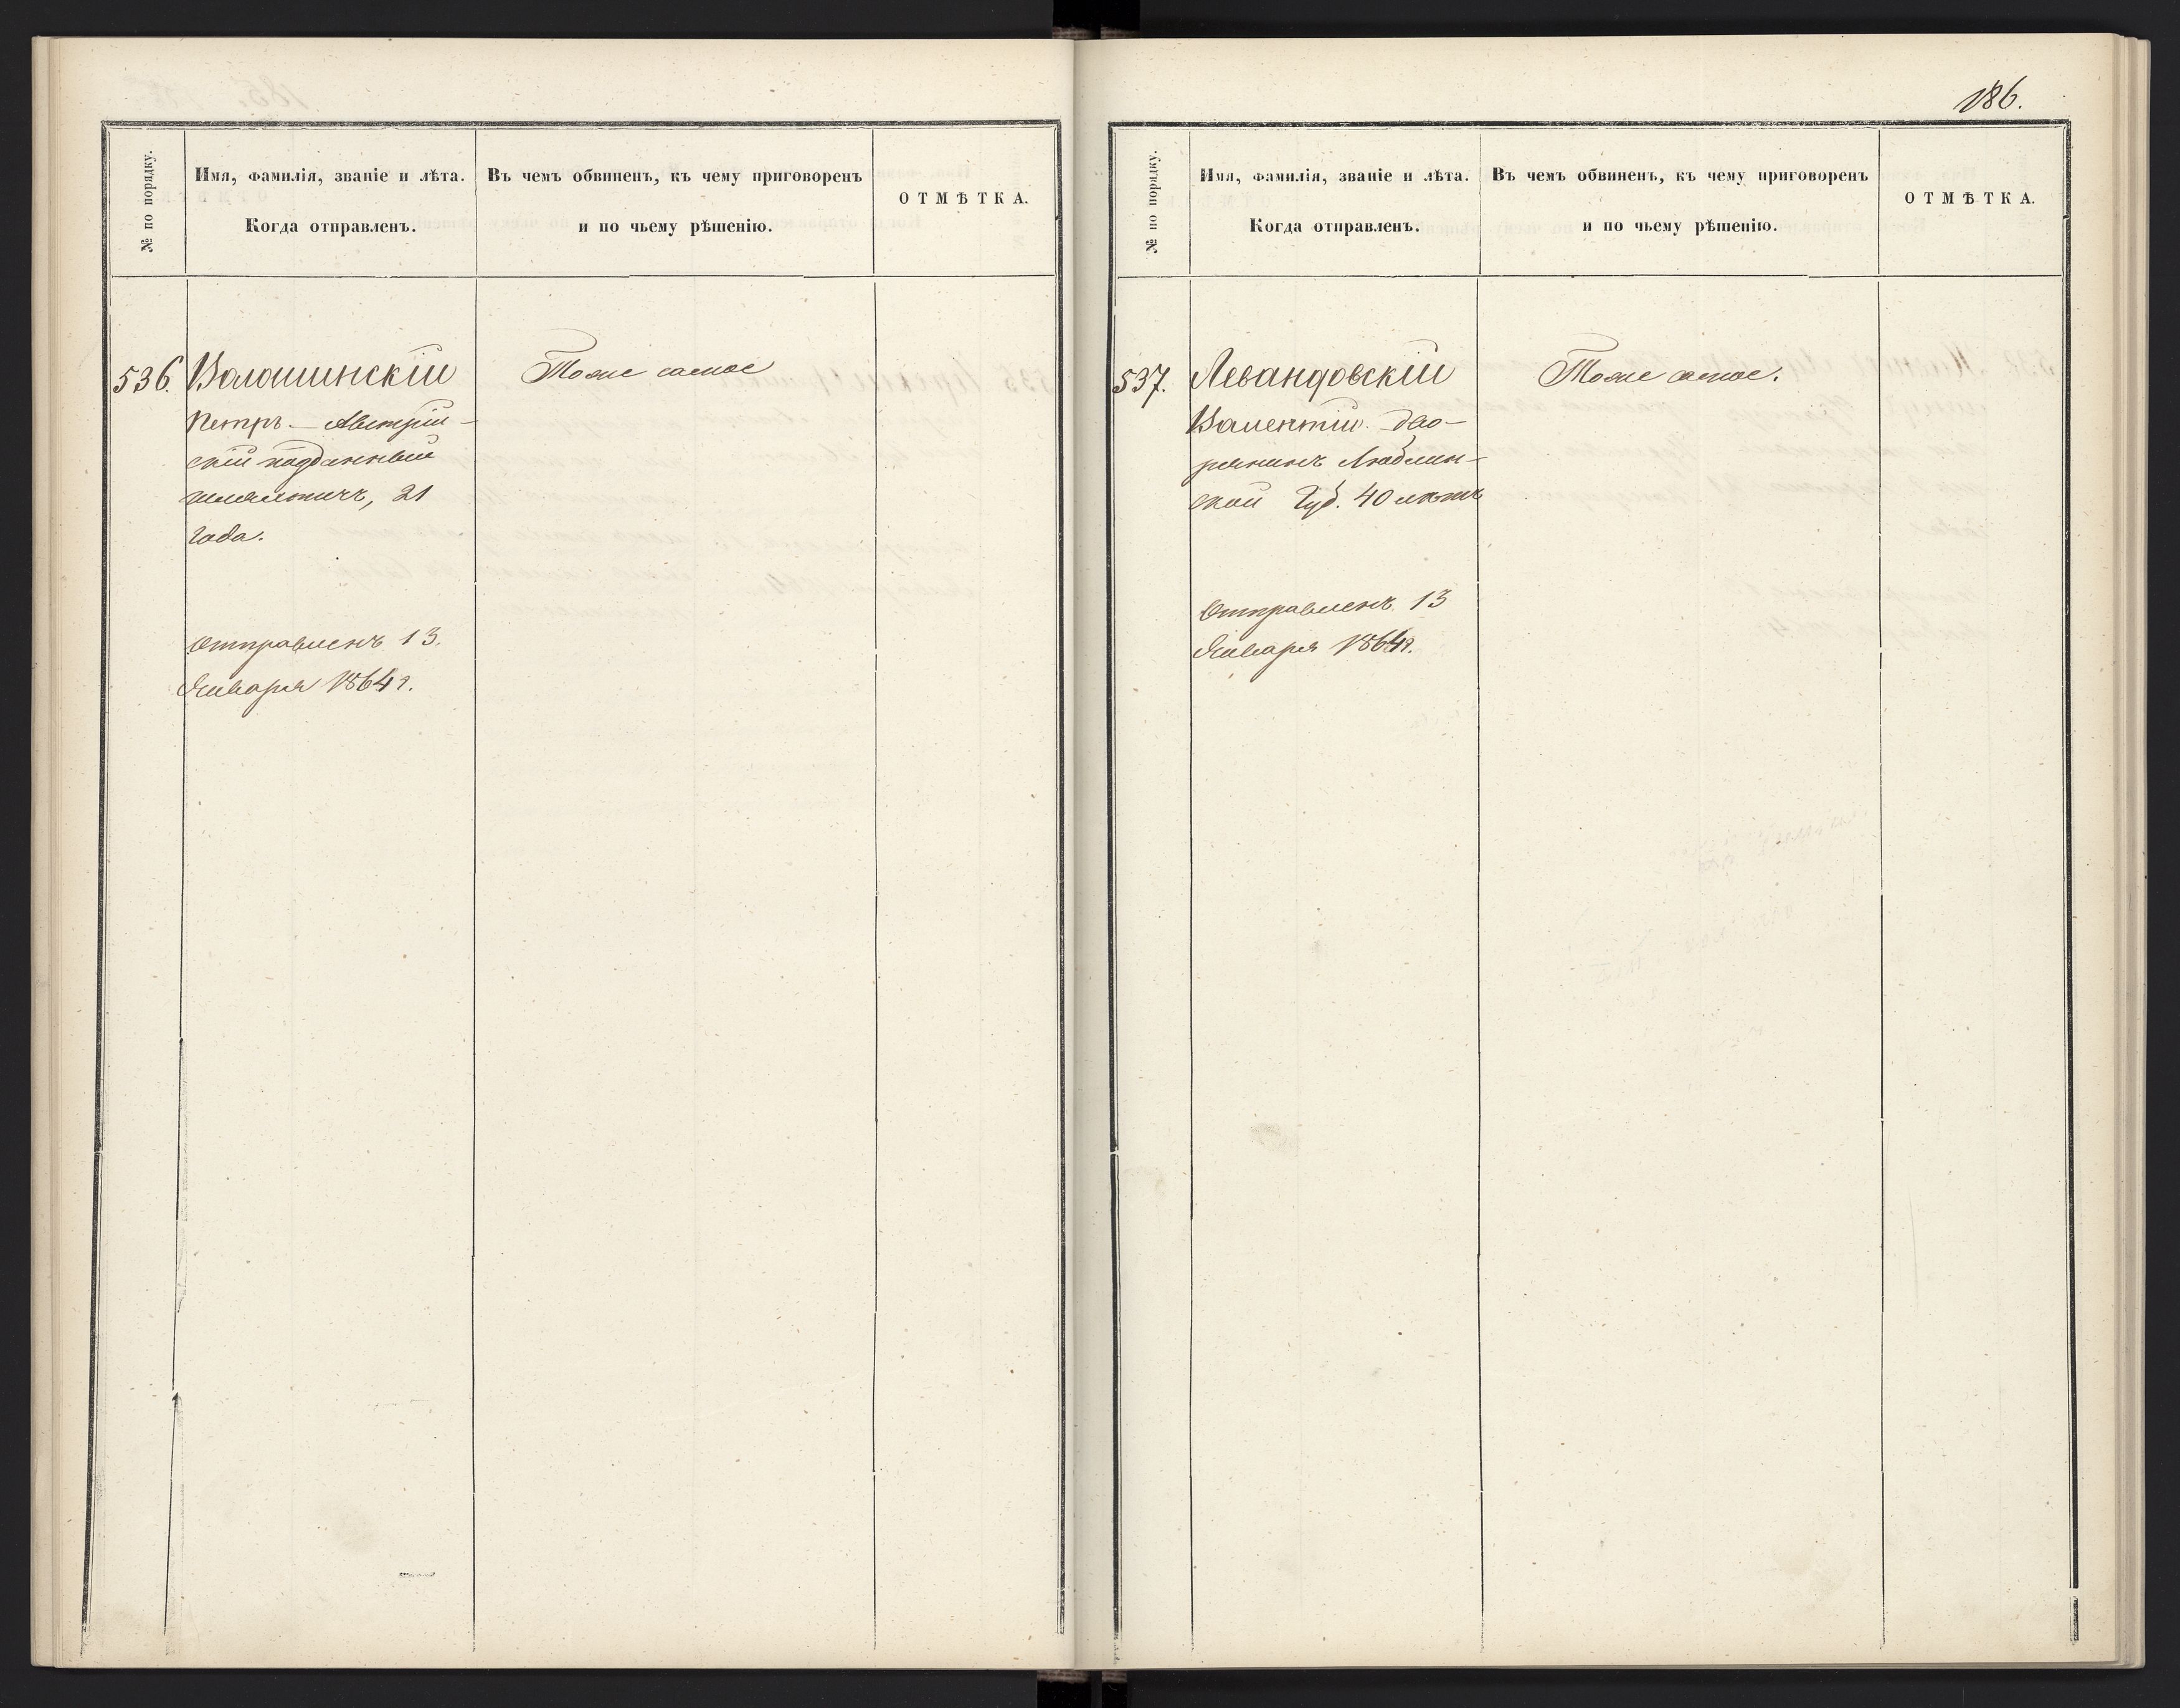 № по порядку.
Имя, фамилія, званіе и лѣта.
Когда отправленъ.
Въ чемъ обвиненъ, къ чему приговоренъ
и по чьему рѣшенію.
ОТМѢТКА.
536.
Валашинскій
Петръ — Австрій-
скій подданный
шляхтичъ, 21
года.
Отправленъ 13.
Января 1864 г.
Тоже самое
186.
№ по порядку.
Имя, фамилія, званіе и лѣта.
Когда отправленъ.
Въ чемъ обвиненъ, къ чему приговоренъ
и по чьему рѣшенію.
ОТМѢТКА.
537.
Левандовскій
Валентій. дво-
рянинъ Люблин-
ской Губ. 40 лѣтъ
Отправленъ 13
Января 1864 г.
Тоже самое.